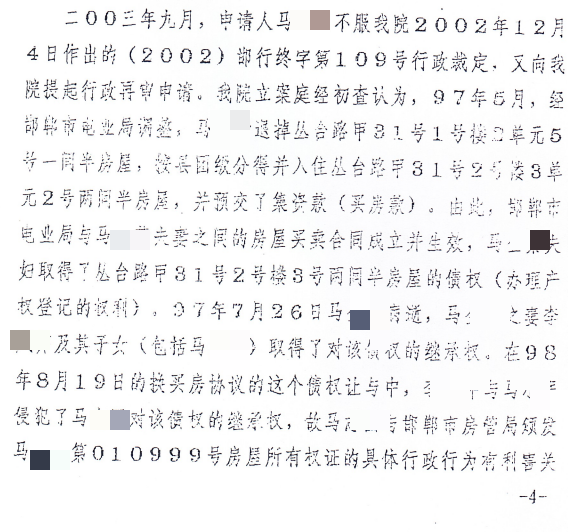 二00三年九月，申请人马 不服我院2002年12月
4日作出的（2002）邯行终字第109号行政裁定，又向我
院提起行政再审申请。我院立案庭经初查认为，97年5月，经
邯郸市电业局调整，马 退掉丛台路甲31号1号楼2单元5
号一间半房屋，按县团级分得并入住丛台路甲31号2号楼3单
元2号两间半房屋，并预交了集资款（买房款）。由此，邯郸市
电业局与马 夫妻之间的房屋买卖合同成立并生效，马 夫
妇取得了丛台路甲31号2号楼3号两间半房屋的债权（办理产
权登记的权利）。97年7月26日马 ，马 之妻李
及其子女（包括马 ）取得了对该债权的继承权。在98
年8月19日的换买房协议的这个债权让与中， 与马
侵犯了马 对该债权的继承权，故马 与邯郸市房管局颁发
马 第010999号房屋所有权证的具体行政行为有利害关
-4-